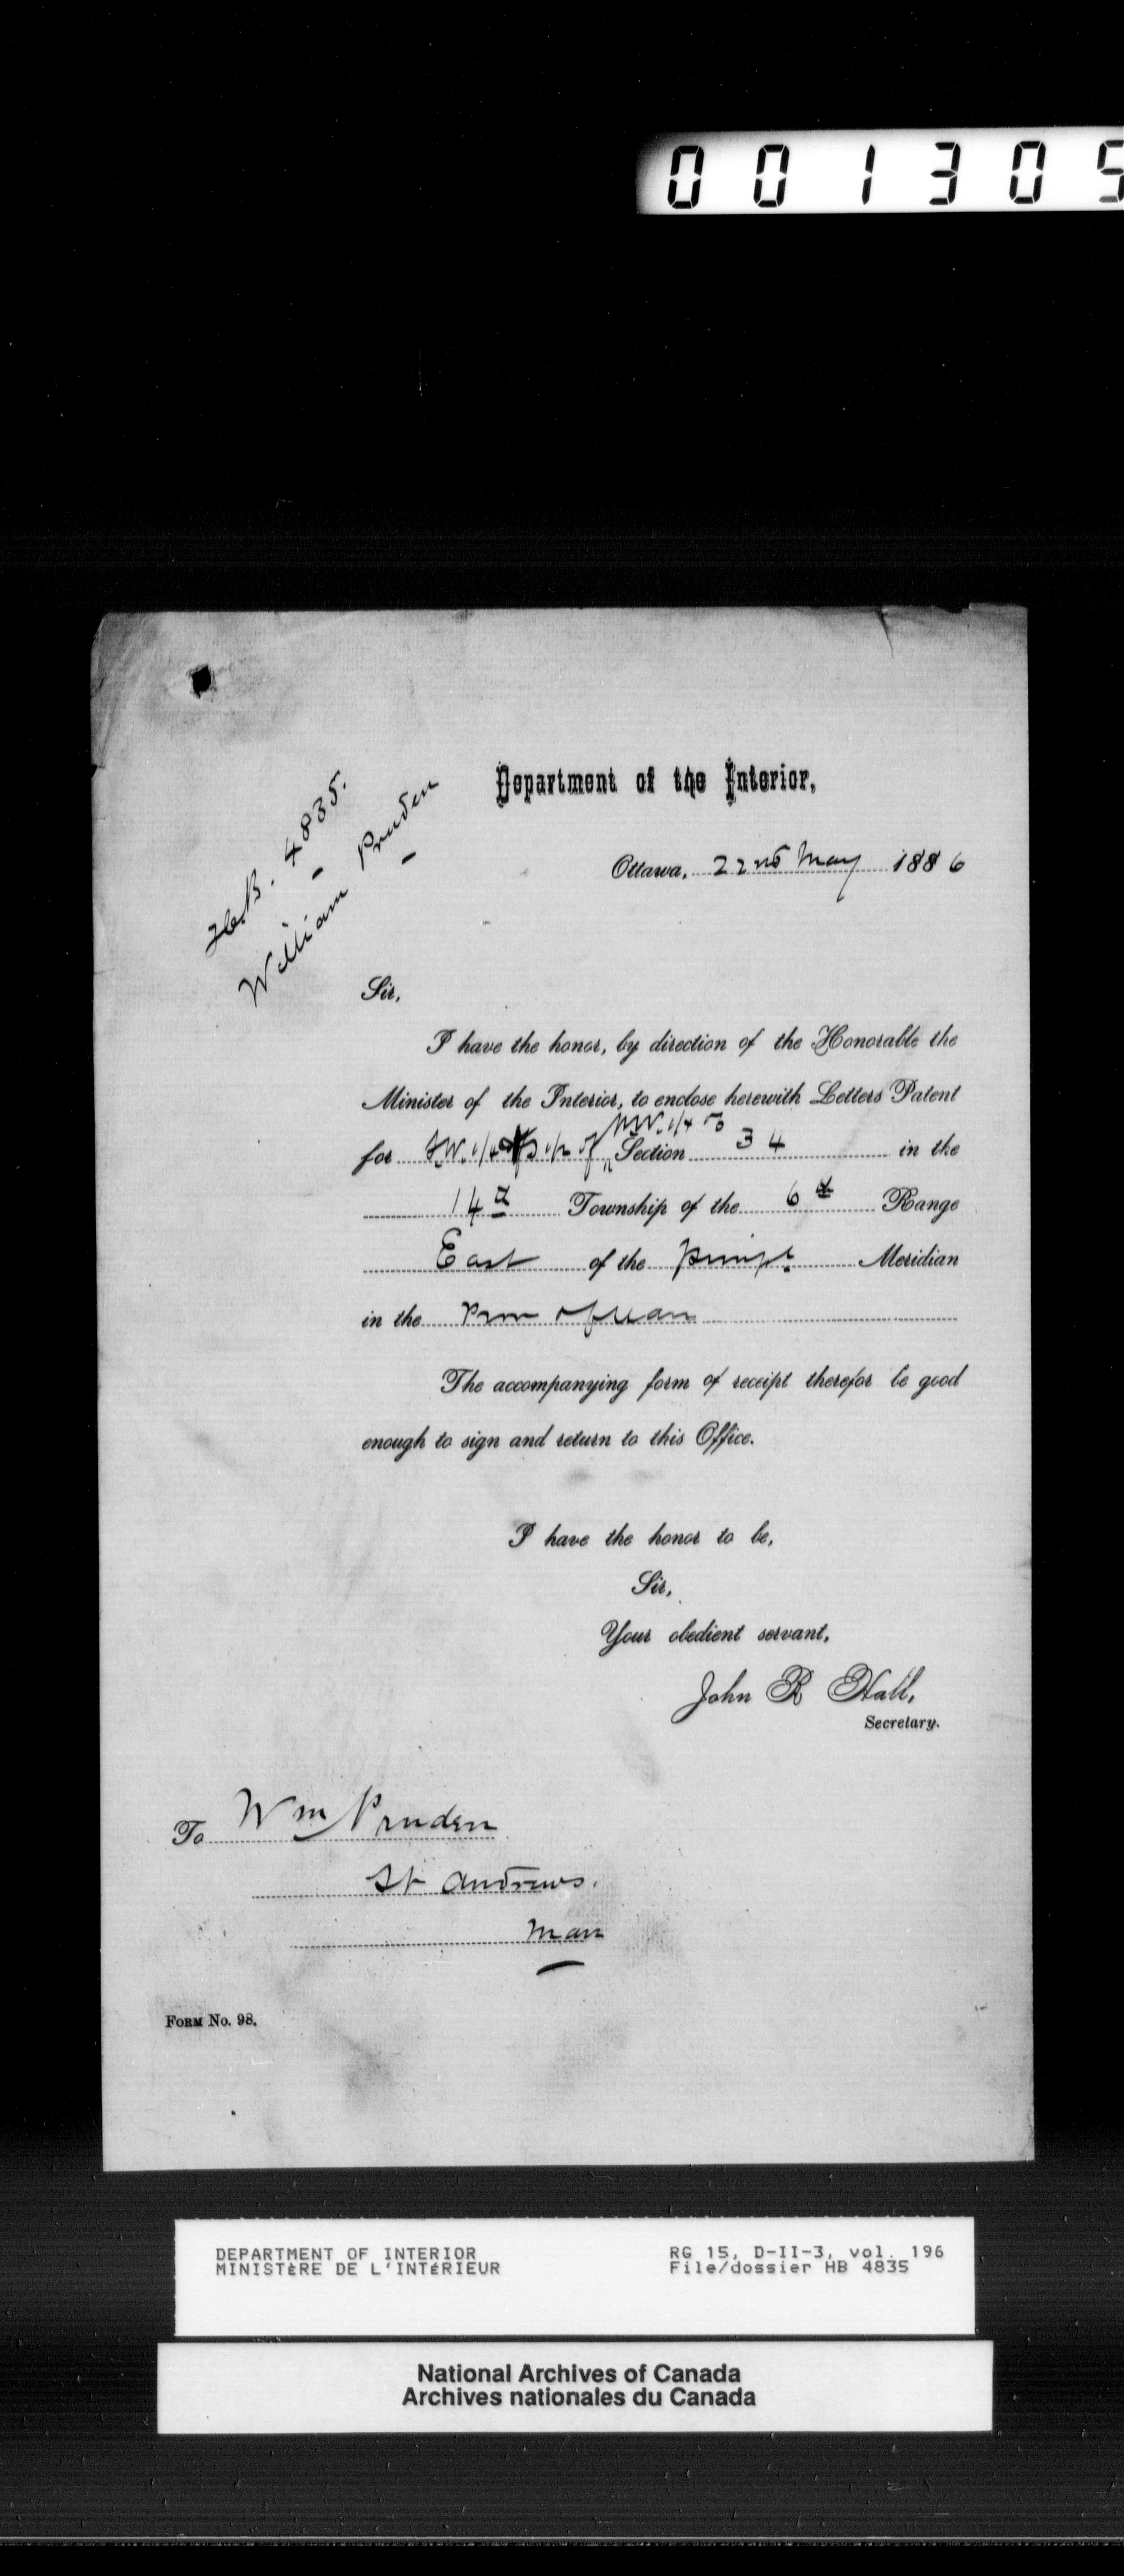 001305
H.B. 4835.
William Pruden
Department of the Interior,
Ottawa, 22nd May 1886
Sir,
I have the honor, by direction of the Honorable the
Minister of the Interior, to enclose herewith Letters Patent
N.W. 1/4
for S.W. 1/4 & S 1/2 of Section 34 in the
14th Township of the 6th Range
East of the Meridian
in the Prov of Man
The accompanying form of receipt therefor be good
enough to sign and return to this Office.
I have the honor to be,
Sir,
Your obedient servant,
John R Hall,
Secretary.
To Wm Pruden
St Andrews.
Man
Form No. 98.
DEPARTMENT OF INTERIOR RG 15, D-II-3, vol. 196
MINISTÈRE DE L'INTÉRIEUR File/dossier HB 4835
National Archives of Canada
Archives nationales du Canada